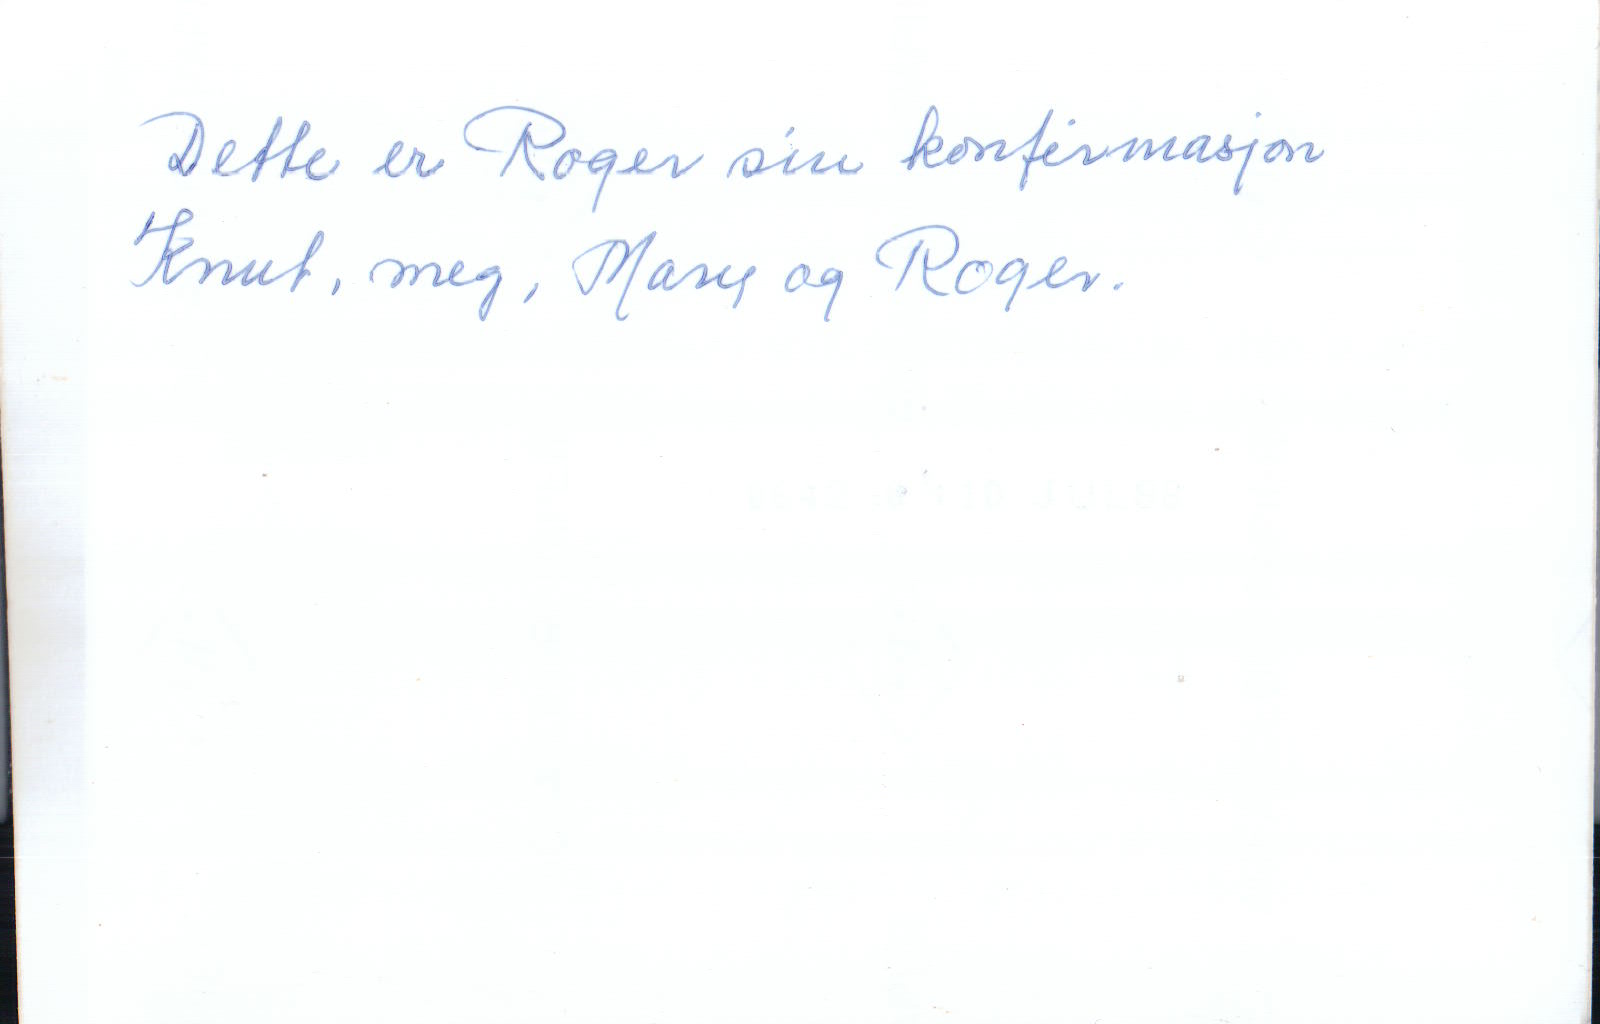 Dette er Roger sin konfirmasjon
Knut, meg, Mary og Roger.